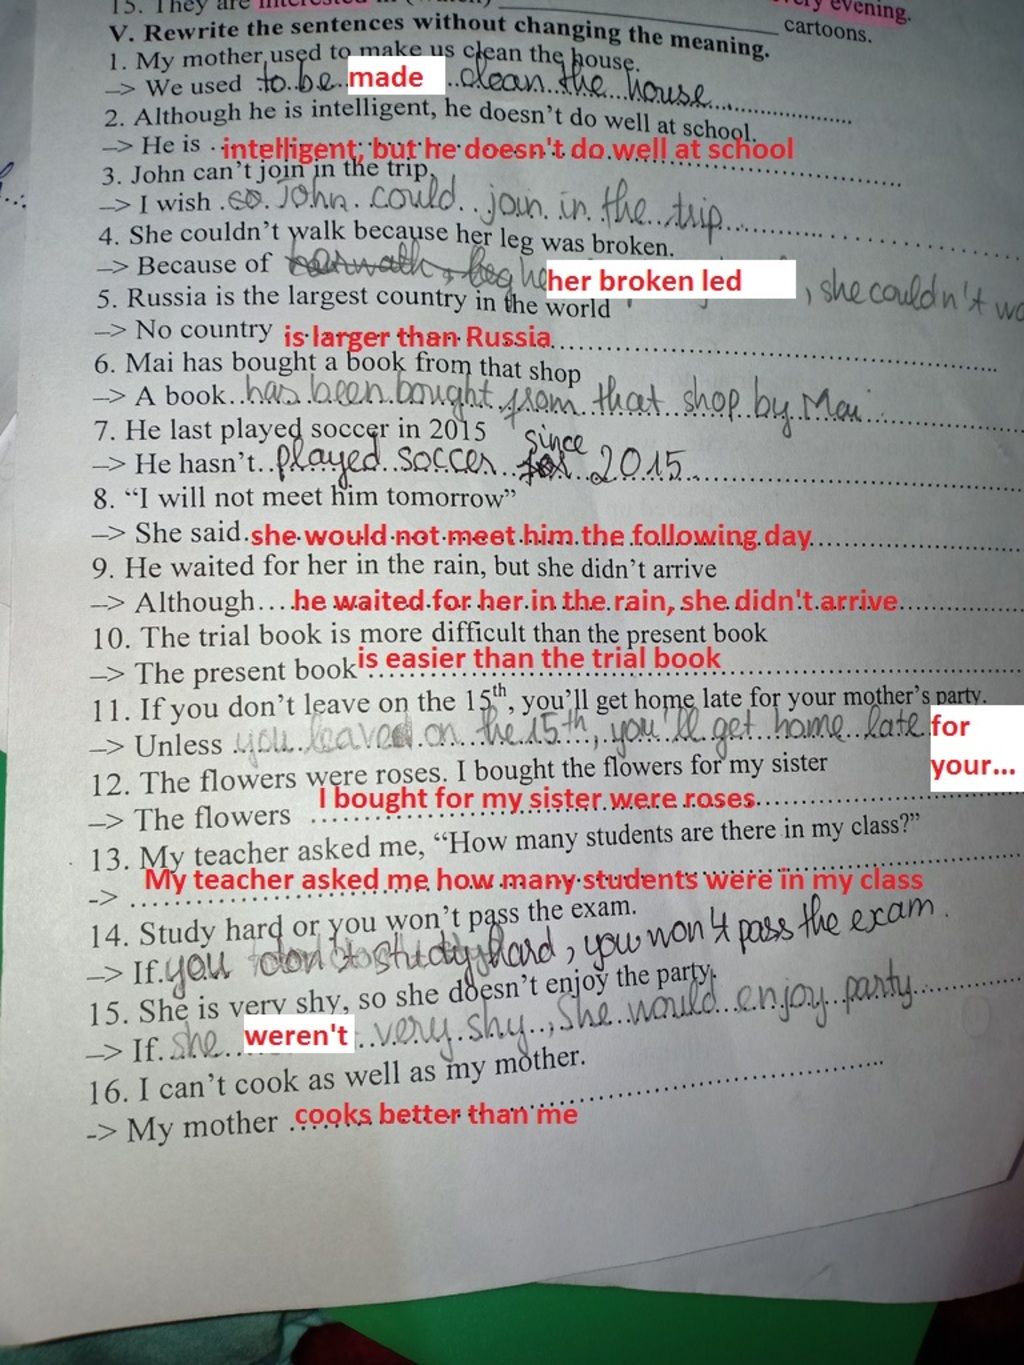 15. They are interested in (watch) ____________________ cartoons.
every evening.
V. Rewrite the sentences without changing the meaning.
1. My mother used to make us clean the house.
–> We used to be made clean the house
2. Although he is intelligent, he doesn't do well at school.
–> He is intelligent, but he doesn't do well at school
3. John can't join in the trip.
–> I wish so John could join in the trip
4. She couldn't walk because her leg was broken.
–> Because of her broken led, she couldn't wa
5. Russia is the largest country in the world
–> No country is larger than Russia
6. Mai has bought a book from that shop
–> A book has been bought from that shop by Mai
7. He last played soccer in 2015
–> He hasn't played soccer since 2015
8. "I will not meet him tomorrow"
–> She said she would not meet him the following day
9. He waited for her in the rain, but she didn't arrive
–> Although he waited for her in the rain, she didn't arrive
10. The trial book is more difficult than the present book
–> The present book is easier than the trial book
11. If you don't leave on the 15th, you'll get home late for your mother's party.
–> Unless you leaved on the 15th, you'll get home late for
your...
12. The flowers were roses. I bought the flowers for my sister
–> The flowers I bought for my sister were roses
13. My teacher asked me, "How many students are there in my class?"
-> My teacher asked me how many students were in my class
14. Study hard or you won't pass the exam.
–> If you don't study hard, you won't pass the exam.
15. She is very shy, so she doesn't enjoy the party.
–> If she weren't very shy, she would enjoy party
16. I can't cook as well as my mother.
-> My mother cooks better than me